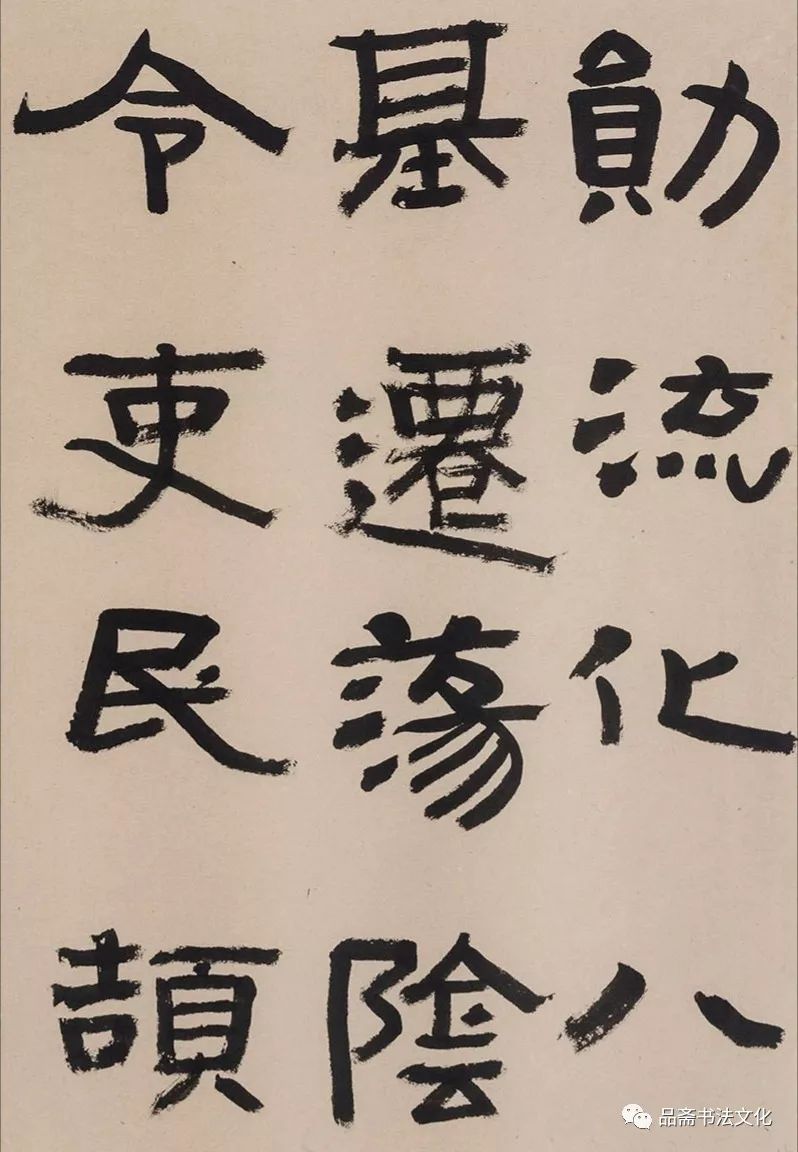 勛流化八
基遷蕩陰
令吏民頡
品斋书法文化